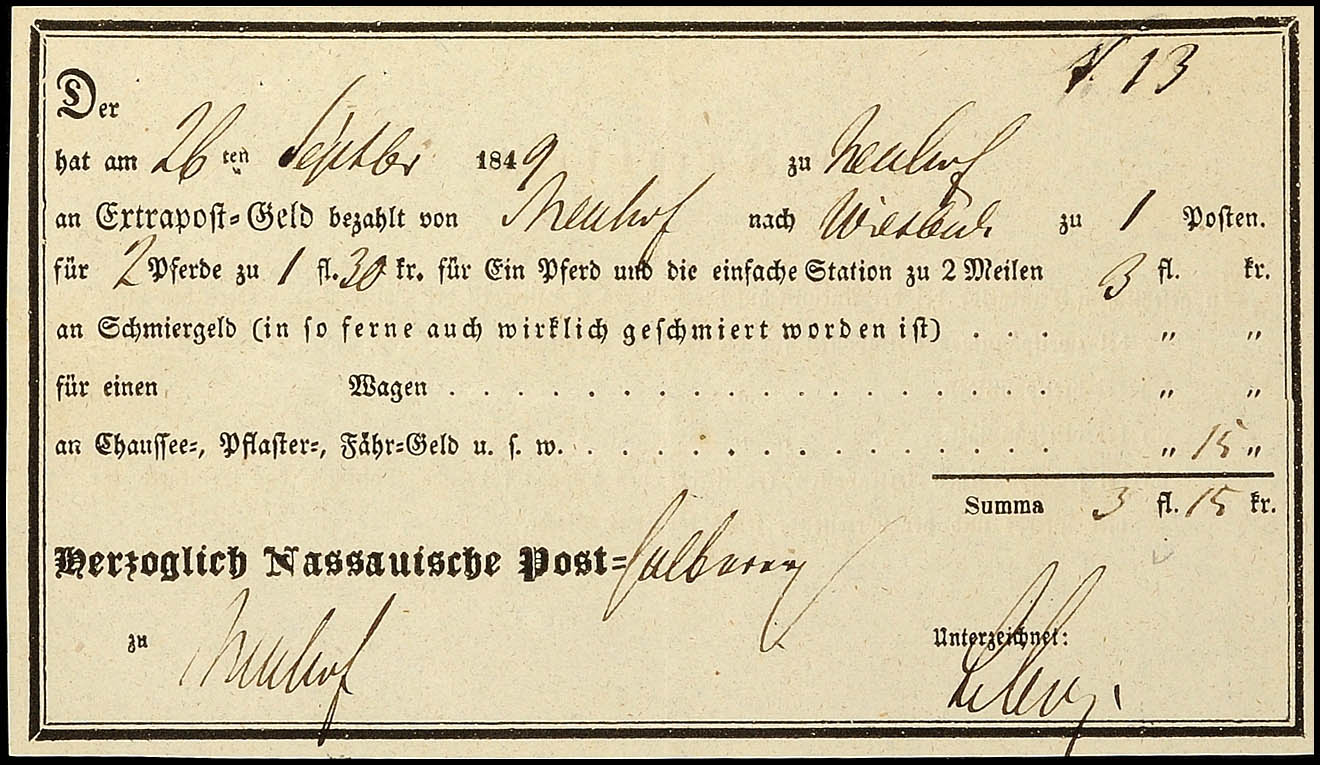 N. 13
Der
hat am 26 ten Septbr 1849 zu Neuhof
an Extrapost=Geld bezahlt von Neuhof nach Wiesbad zu 1 Posten.
für 2 Pferde zu 1 fl. 30 kr. für Ein Pferd und die einfache Station zu 2 Meilen 3 fl. kr.
an Schmiergeld (in so ferne auch wirklich geschmiert worden ist) . . . " "
für einen Wagen . . . . . . . . . . . . . . . . . . " "
an Chaussee=, Pflaster=, Fähr=Geld u. s. w. . . . . . . . . . . . . . " 15 "
Summa 3 fl. 15 kr.
Herzoglich Nassauische Post=
zu Neuhof Unterzeichnet: